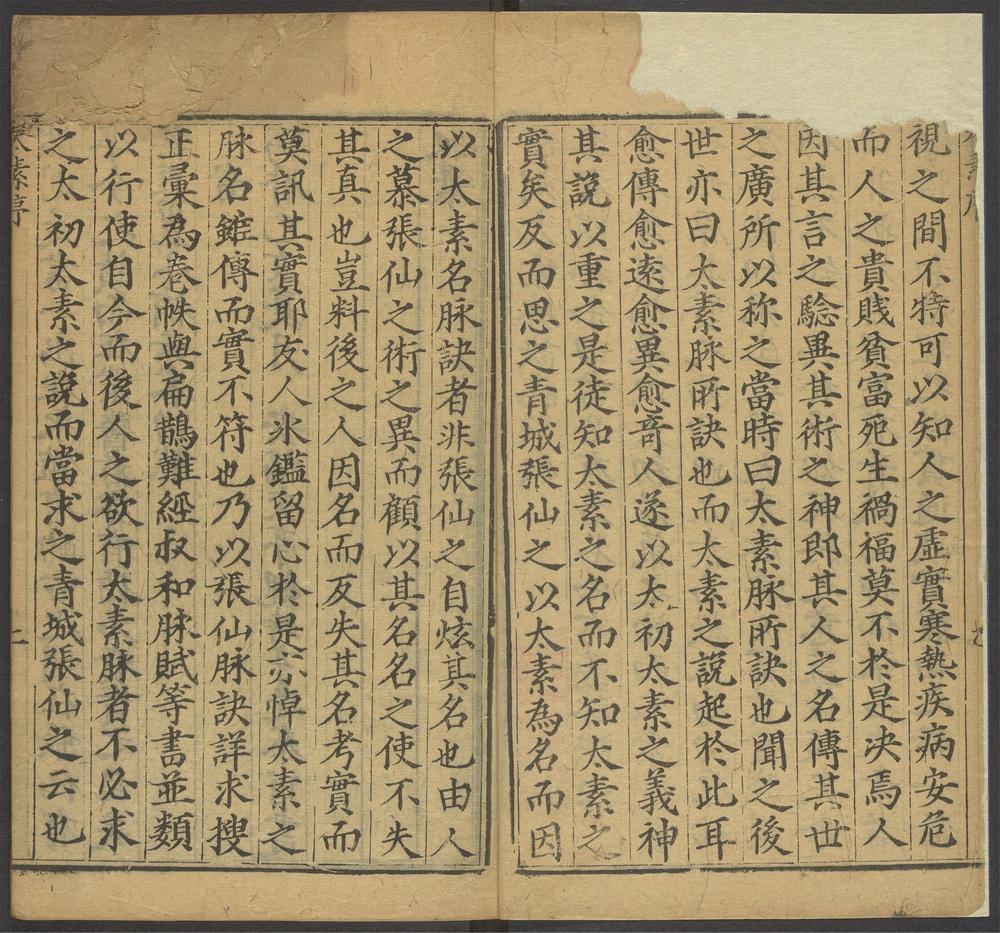 視之間不特可以知人之虛實寒熱疾病安危
而人之貴賤貧富死生禍福莫不扵是决焉人
因其言之驗異其術之神即其人之名傳其世
之廣所以称之當時曰太素脉所訣也聞之後
世亦曰太素脉所訣也而太素之説起扵此耳
愈傳愈逺愈異愈竒人遂以太初太素之義神
其説以重之是徒知太素之名而不知太素之
實矣反而思之青城張仙之以太素為名而因
以太素名脉訣者非張仙之自炫其名也由人
之慕張仙之術之異而顧以其名名之使不失
其真也豈料後之人因名而反失其名考實而
莫訊其實耶友人氷鑑留心扵是亦悼太素之
脉名雖傳而實不符也乃以張仙脉訣詳求搜
正彙為卷帙與扁鵲難經叔和脉賦等書並類
以行使自今而後人之欲行太素脉者不必求
之太初太素之説而當求之青城張仙之云也
太素序
二